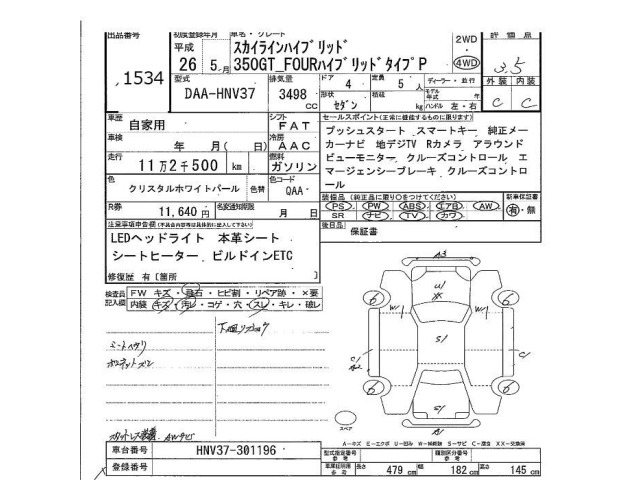 出品番号 初度登録年月 車名・グレード 評価点
平成 スカイラインハイブリッド 2WD
1534 26 5月 350GT_FOURハイブリッドタイプP 4WD 3.5
型式 排気量 ドア 4 定員 5人 ディーラー・並行 外装 内装
DAA-HNV37 3498cc 形状 セダン 積載 kg モデル年式 年 ハンドル 左・右 C C
車歴 自家用 シフト FAT セールスポイント(正常に機能するものに限ります)
車検 年 月(日) 冷房 AAC プッシュスタート スマートキー 純正メー
走行 11万2千500km 燃料 ガソリン カーナビ 地デジTV Rカメラ アラウンド
ビューモニター クルーズコントロール エ
色 クリスタルホワイトパール 色替 色コード QAA マージェンシーブレーキ クルーズコントロ
ール
R券 11,640円 名変通知期限 月 日 装備品(純正品に限り○をつけてください) 新車保証書
PS PW ABS エアB AW 有・無
SR ナビ TV カワ
注意事項申告欄 後日品
LEDヘッドライト 本革シート 保証書
シートヒーター ビルドインETC
修復歴 有〔箇所 〕
検査員記入欄 FW キズ・飛石・ヒビ割・リペア跡・×要
内装 キズ・汚レ・コゲ・穴・スレ・キレ・破レ
シートヘタリ
A3
U1
6 6
W1 W1
S1
C1 A2 C1
6 6
S1
A1
スペア
AWサビ
A-キズ E-エクボ U-凹み S-サビ C-腐食 XX-交換済
車台番号 HNV37-301196 型式指定番号 参考 類別区分番号 参考
登録番号 車庫証明用 参考 長さ 479cm 幅 182cm 高さ 145cm